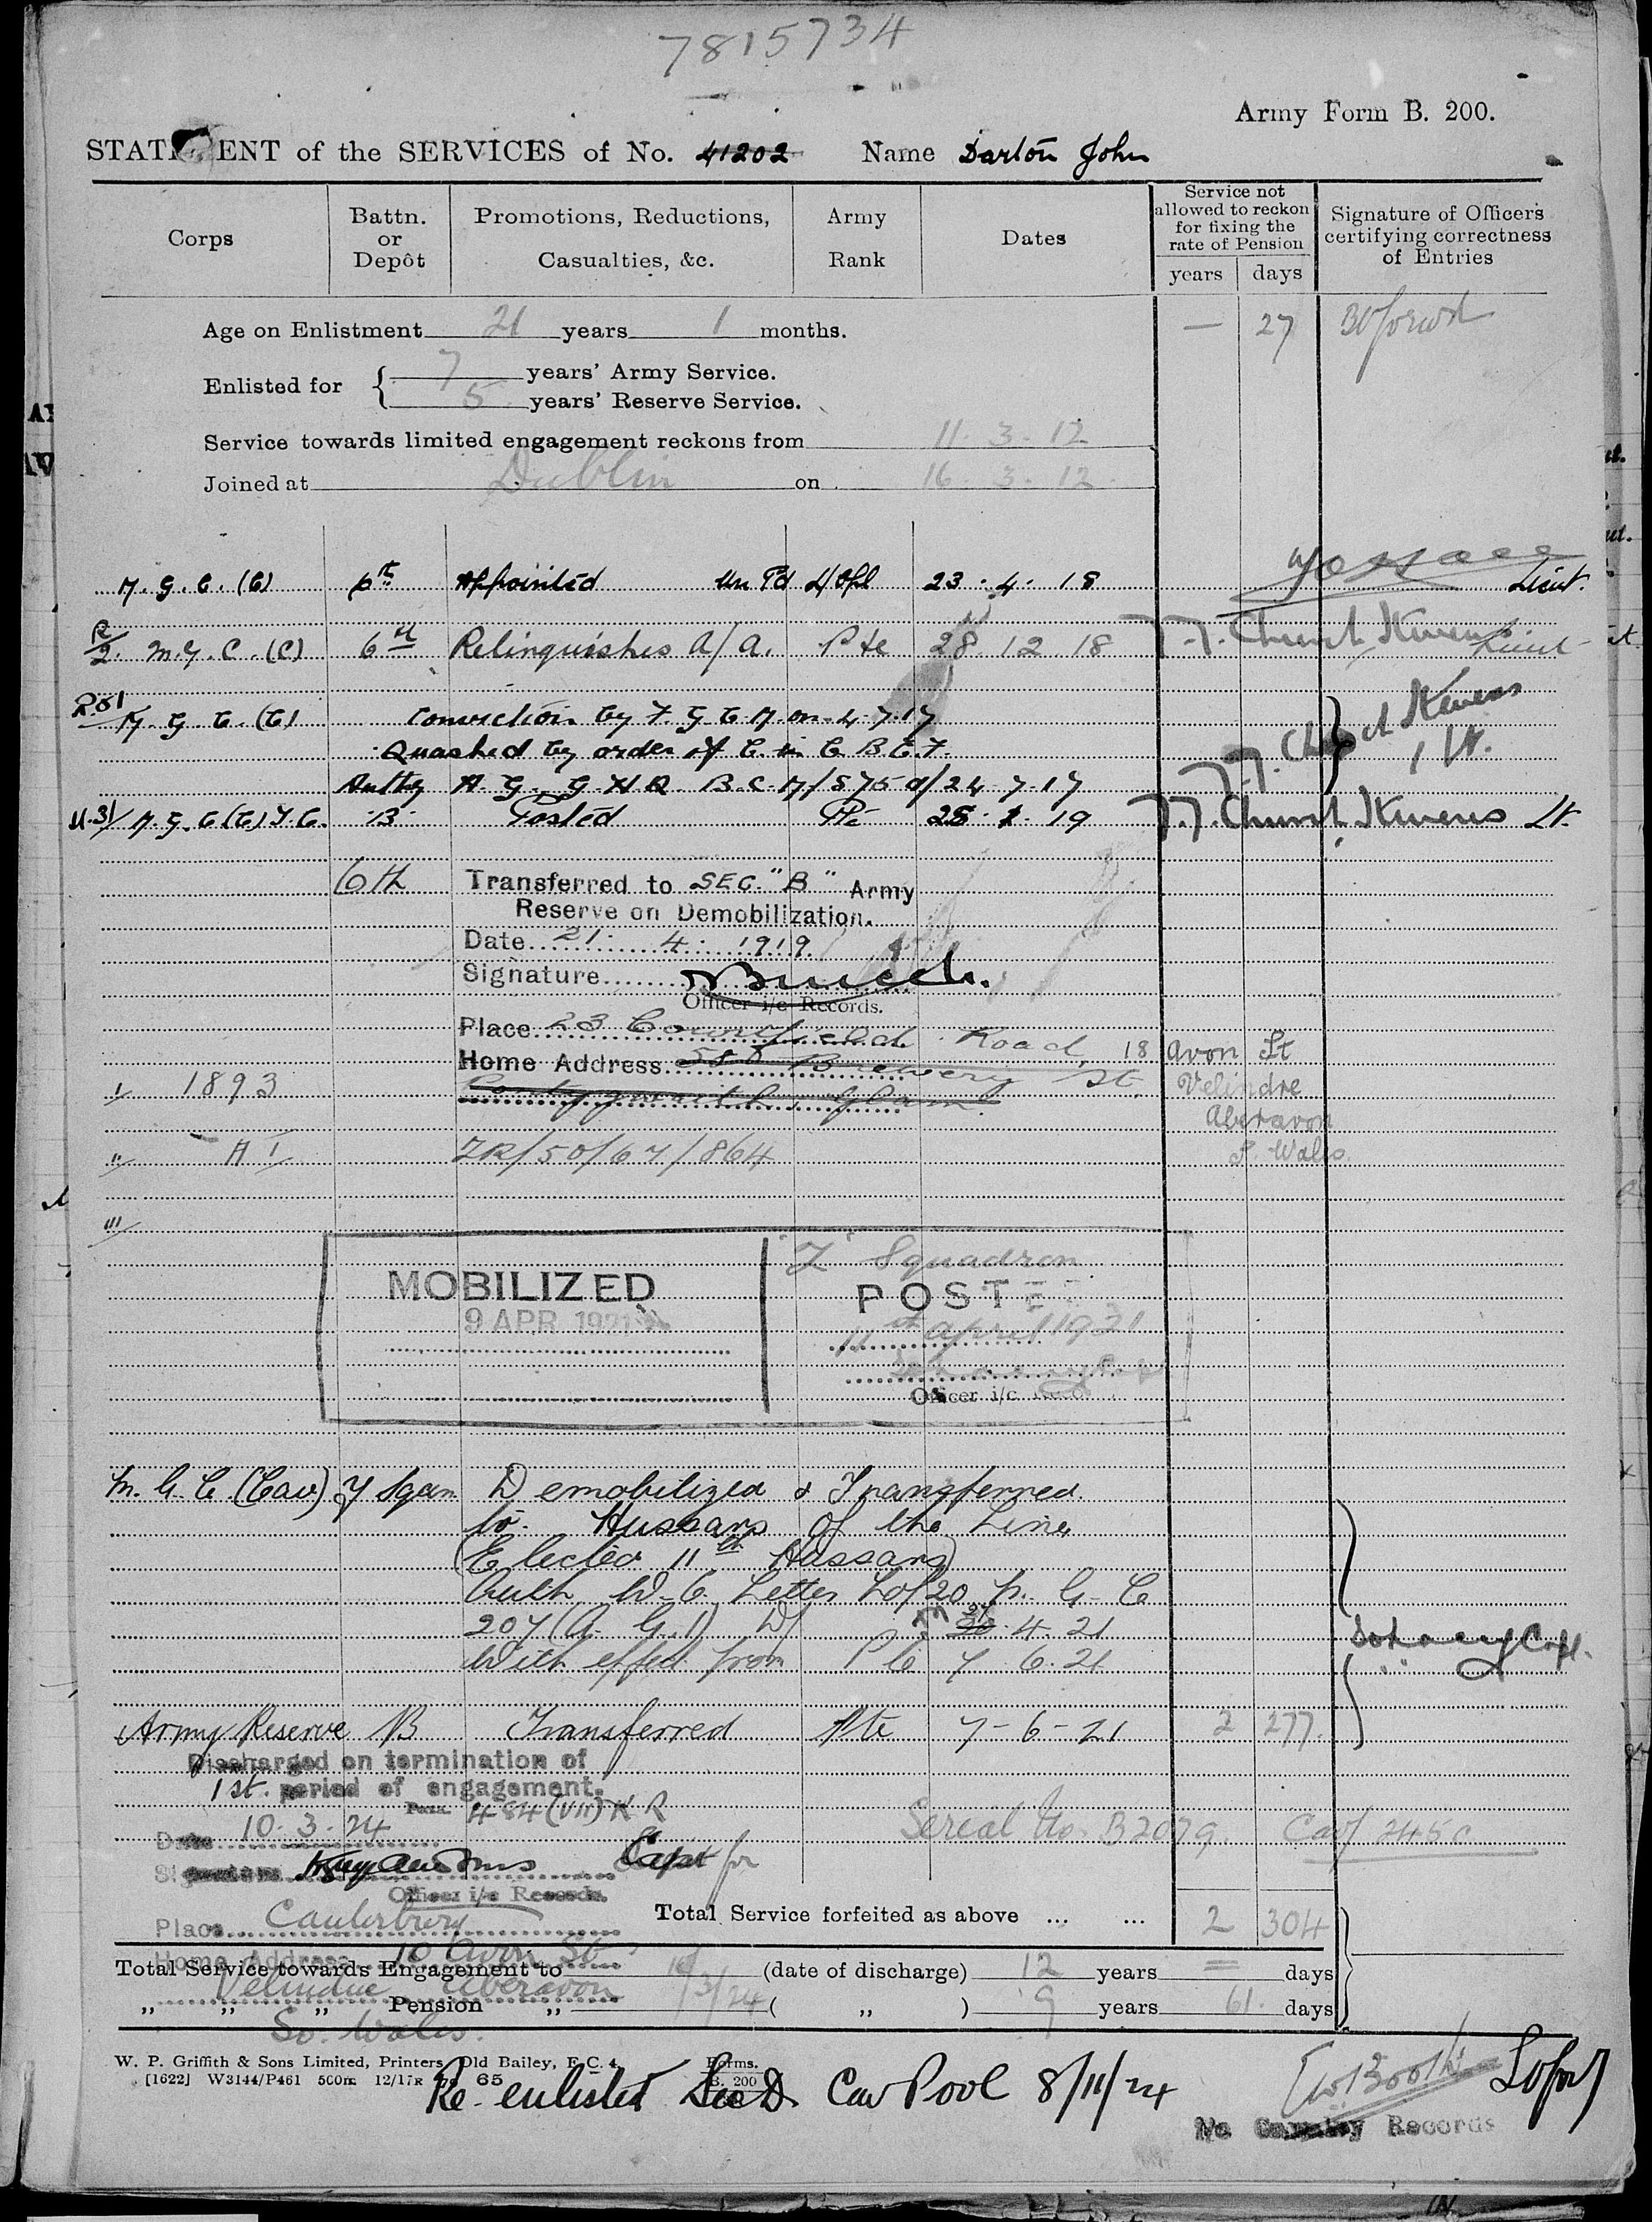 7815734
Army Form B. 200.
STATEMENT of the SERVICES of No. 41202 Name Darton John
Corps
Battn. or Depôt
Promotions, Reductions, Casualties, &c.
Army Rank
Dates
Service not allowed to reckon for fixing the rate of Pension
years days
Signature of Officers certifying correctness of Entries
Age on Enlistment 21 years 1 months. — 27
Enlisted for { 7 years' Army Service.
5 years' Reserve Service.
Service towards limited engagement reckons from 11. 3. 12
Joined at Dublin on 16. 3. 12.
M. G. C. (C) 6th Appointed Un Pd L/Cpl 23. 4. 18 Lieut.
R/2. M. G. C. (C) 6th Relinquishes A/A. Pte 28 12 18 Church Stevens Lieut
M. G. C. (C) Conviction by F. G. C. M on 4. 7. 17
Quashed by order of C. in C B. E. F.
Church Stevens Lt.
Authy A. G. G H Q B. C. M/875 d/24 7. 17
U.31/ M. G. C (C) T. C. B Posted Pte 25. 1. 19 Church Stevens Lt.
6th Transferred to SEC. "B" Army
Reserve on Demobilization.
Date 21. 4. 1919.
Signature
Officer i/c Records.
Place 23 Road, 18 Avon St
Home Address Brewery St. Velindre
1893 Glam. Aberavon
A I ZR/50/67/864 S. Wales.
MOBILIZED
9 APR 1921
"Z" Squadron
POSTED
11th April 1921
Officer i/c
M. G. C (Cav) Sqdn Demobilized & Transferred
to Hussars of the Line
(Elected 11th Hussars)
Auth W. O. Letter No/20 M. G. C
207 (A. G. 1) D/ 27 4. 21
With effect from Pte 7 6. 21
Capt.
Army Reserve B Transferred Pte 7-6-21 2 277.
Discharged on termination of
1st. period of engagement.
Para. 484 (VII) K R
Date 10. 3. 24
Serial No. B2079.
Signature Capt for
Officer i/c Records.
Total Service forfeited as above ... ... 2 304
Place Canterbury
Home Address 18 Avon St
Total Service towards Engagement to 10/3/24 (date of discharge) 12 years = days
Velindre Aberavon
„ „ „ Pension „ ( „ ) 9 years 61. days
So. Wales.
W. P. Griffith & Sons Limited, Printers, Old Bailey, E.C. 4.
[1622] W3144/P461 500m 12/17 65
Forms.
B. 200
Re-enlisted Sec D Cav Pool 8/11/24
Records